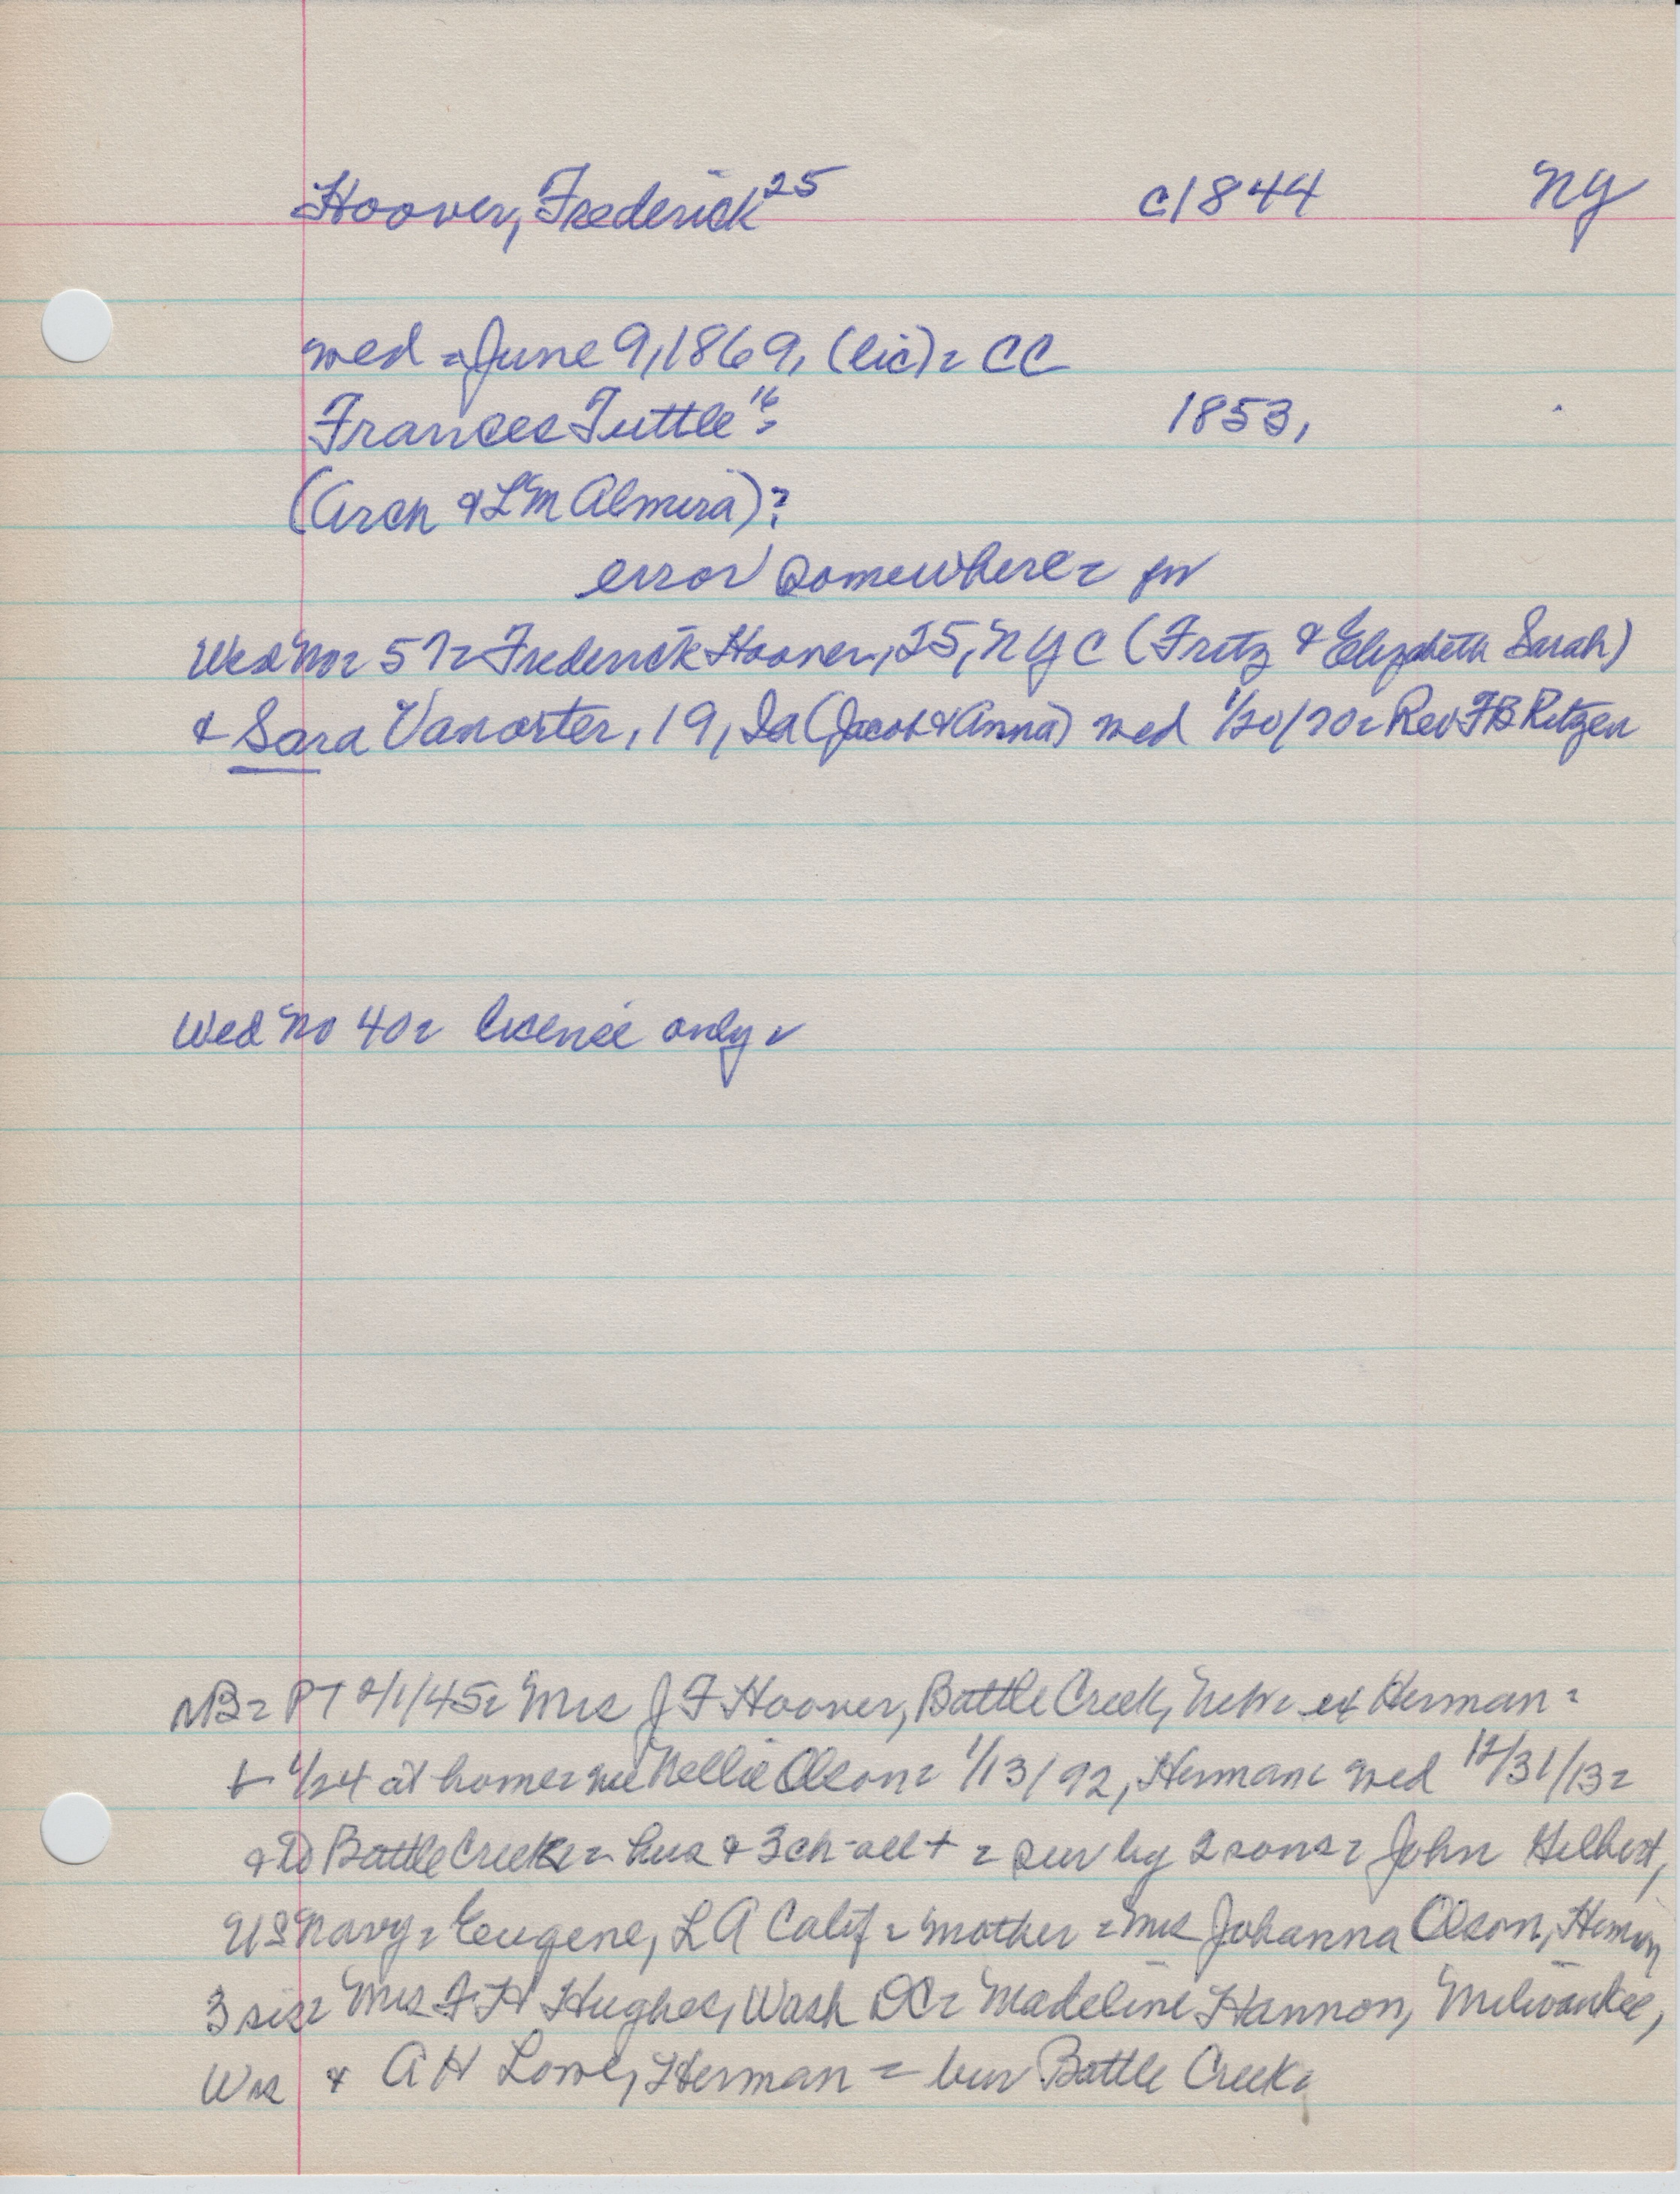 Hoover, Frederick 25 c1844 NY
wed = June 9, 1869, (lic) = CC
Frances Tuttle 16 = 1853,
(Arch & L M Almira)?
error somewhere = for
Wed No = 57 = Frederick Hoover, 25, NYC (Fritz & Elizabeth Sarah)
& Sara Vanorter, 19, Ia (Jacob & Anna) wed 1/20/70 = Rev FB Ritzen
Wed No 40 = license only
NB = PT 2/1/45 = Mrs J F Hoover, Battle Creek, Nebr = ex Herman =
+ 1/24 at home = nee Nellie Olson = 1/13/92, Herman = wed 12/31/13 =
& to Battle Creek = hus & 3 ch - all + = sur by 2 sons = John Hilbert,
US Navy = Eugene, LA Calif = mother = Mrs Johanna Olson, Herman,
3 sis = Mrs F H Hughes, Wash DC = Madeline Hannon, Milwaukee,
Wis & A H Lowe, Herman = bur Battle Creek